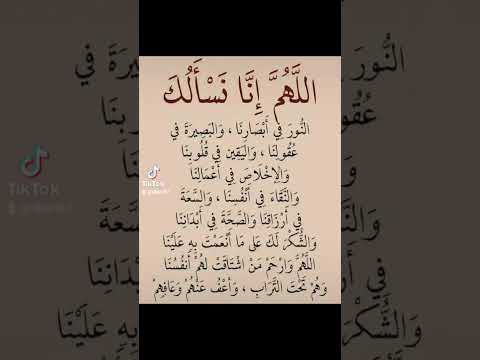 اللَّهُمَّ إِنَّا نَسْأَلُكَ
النُّورَ فِي أَبْصَارِنَا ، وَالبَصِيرَةَ فِي
عُقُولِنَا ، وَاليَقِينَ فِي قُلُوبِنَا
وَالإِخْلَاصَ فِي أَعْمَالِنَا
وَالنَّقَاءَ فِي أَنْفُسِنَا ، وَالسَّعَةَ
فِي أَرْزَاقِنَا وَالصِّحَّةَ فِي أَبْدَانِنَا
وَالشُّكْرَ لَكَ عَلَى مَا أَنْعَمْتَ بِهِ عَلَيْنَا
اللَّهُمَّ وَارْحَمْ مَنْ اشْتَاقَتْ لَهُمْ أَنْفُسُنَا
وَهُمْ تَحْتَ التُّرَابِ ، وَاعْفُ عَنْهُمْ وَعَافِهِمْ
TikTok